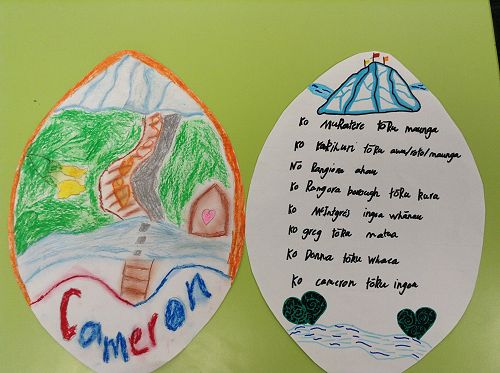 Cameron
Ko MuRatere tōku maunga
Ko Kakihuri tōku awa/roto/maunga
Nō Rangiora ahau
Ko Rangora borough tōku kura
Ko McIntyres ingoa whānau
Ko greg tōku matua
Ko Donna tōku whaea
Ko cameron tōku ingoa